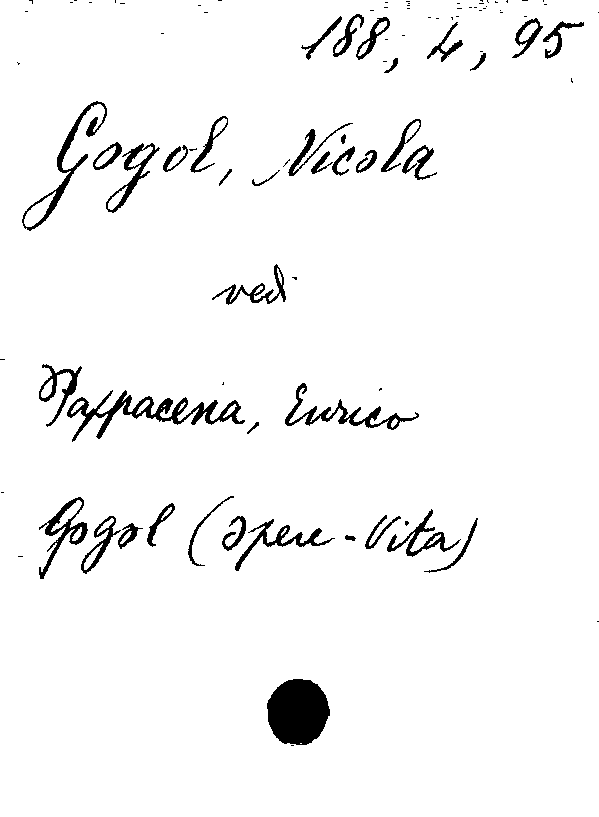 188, 4, 95
Gogol, Nicola
vedi
Pappacena, Enrico
Gogol (Opere - Vita)